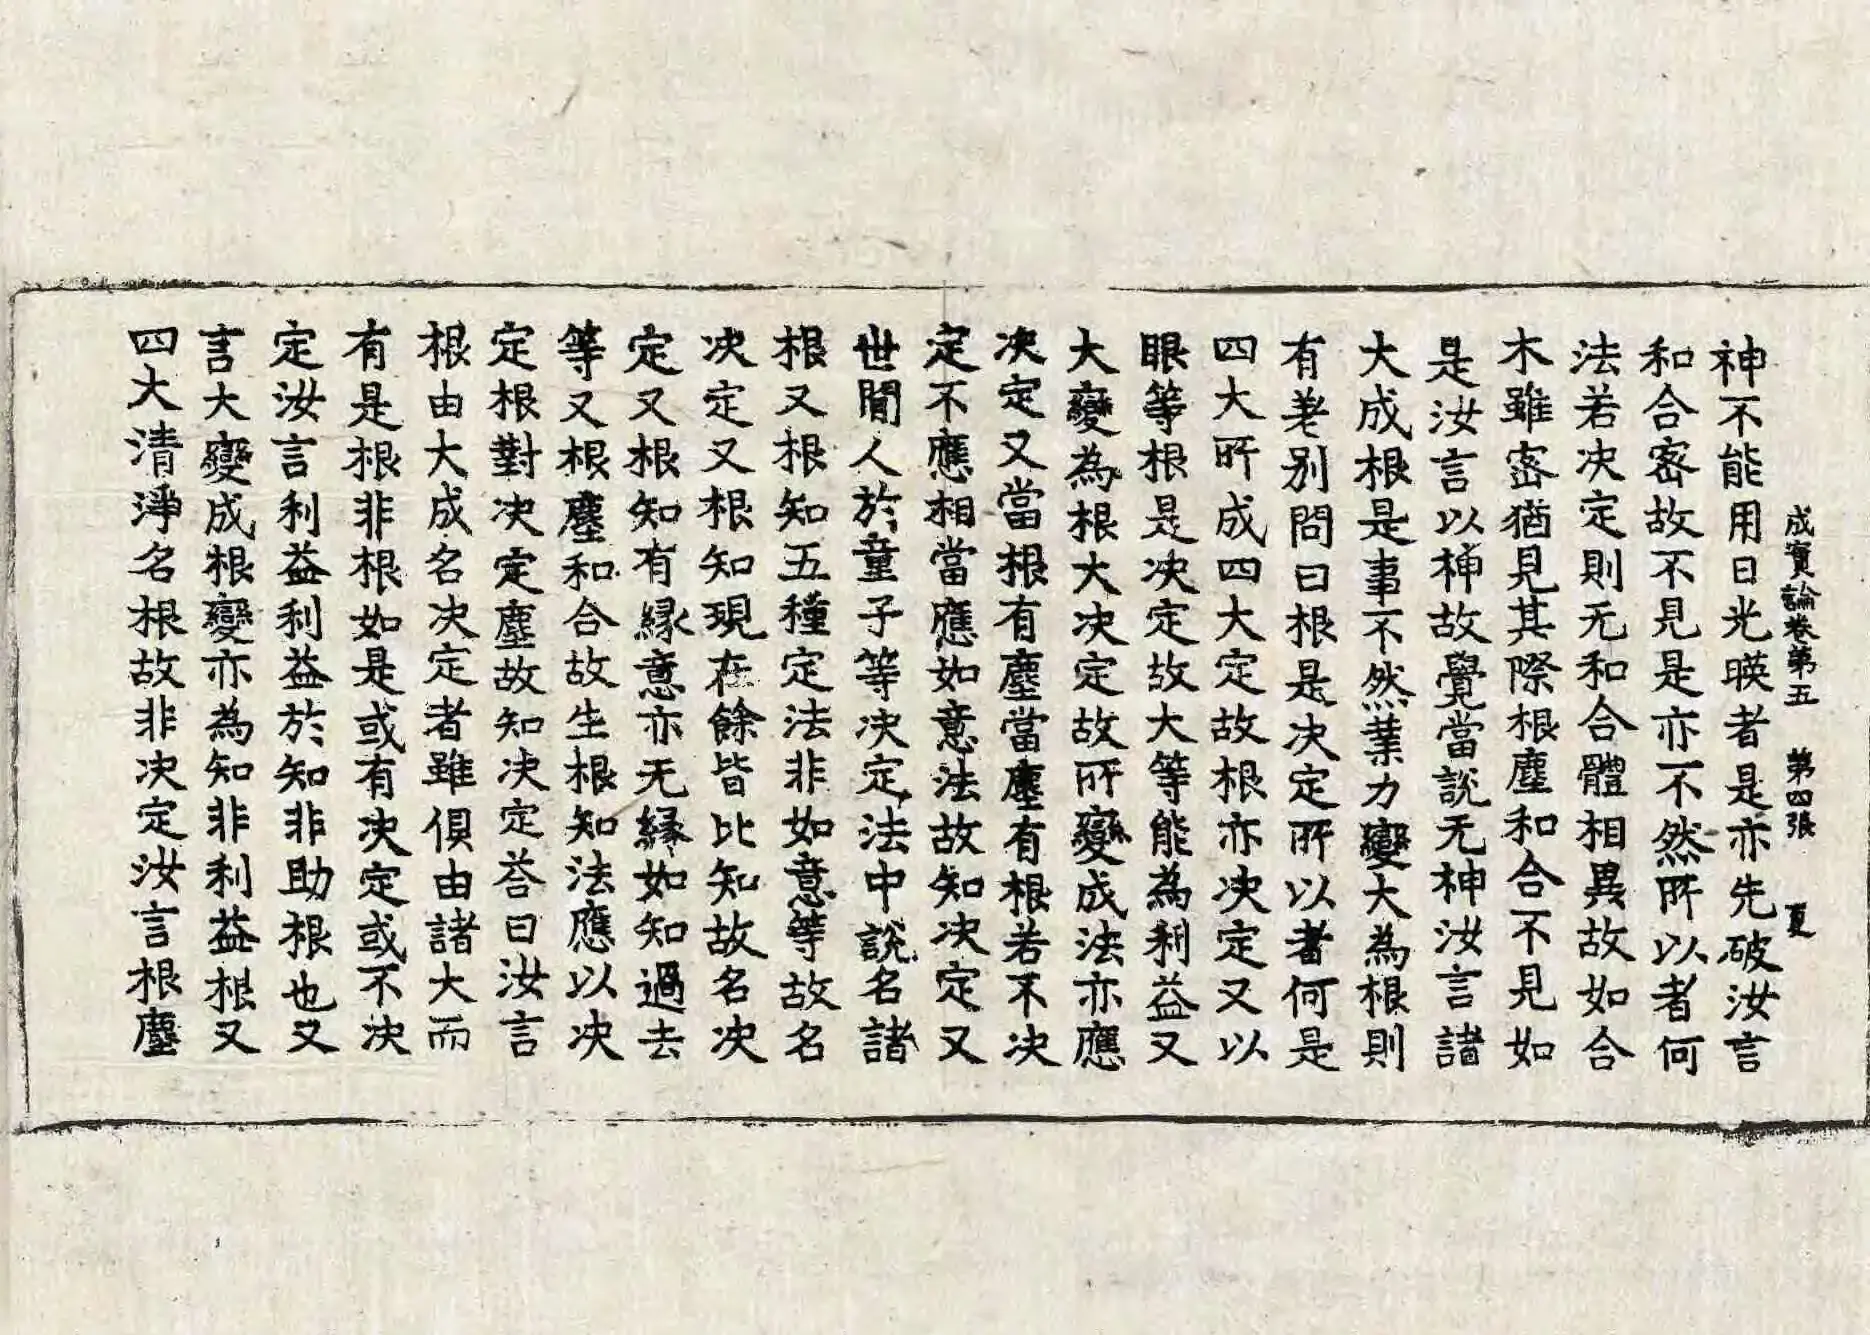 成實論卷第五　第四張　夏
神不能用日光暎者是亦先破汝言
和合密故不見是亦不然所以者何
法若决定則无和合體相異故如合
木雖密猶見其際根塵和合不見如
是汝言以神故覺當說无神汝言諸
大成根是事不然業力變大為根則
有差別問曰根是决定所以者何是
四大所成四大定故根亦决定又以
眼等根是决定故大等能為利益又
大變為根大决定故所變成法亦應
决定又當根有塵當塵有根若不决
定不應相當應如意法故知决定又
世間人於童子等决定法中說名諸
根又根知五種定法非如意等故名
决定又根知現在餘皆比知故名决
定又根知有緣意亦无緣如知過去
等又根塵和合故生根知法應以决
定根對决定塵故知决定荅曰汝言
根由大成名决定者雖俱由諸大而
有是根非根如是或有决定或不决
定汝言利益利益於知非助根也又
言大變成根變亦為知非利益根又
四大清淨名根故非决定汝言根塵